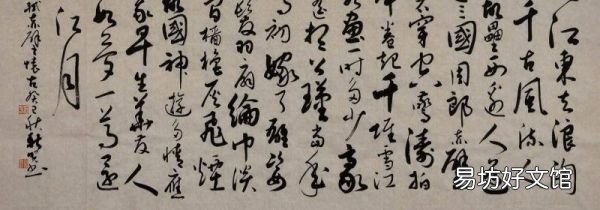 江東去浪淘
千古風流人
故壘西邊人道
三國周郎赤壁
穿空驚濤拍
卷起千堆雪江
如畫一時多少豪
遙想公瑾當年
初嫁了雄姿
發羽扇綸巾談
間檣櫓灰飛煙
故國神遊多情應
我早生華髮人
如夢一尊還
江月
軾赤壁懷古癸巳秋
易坊好文馆